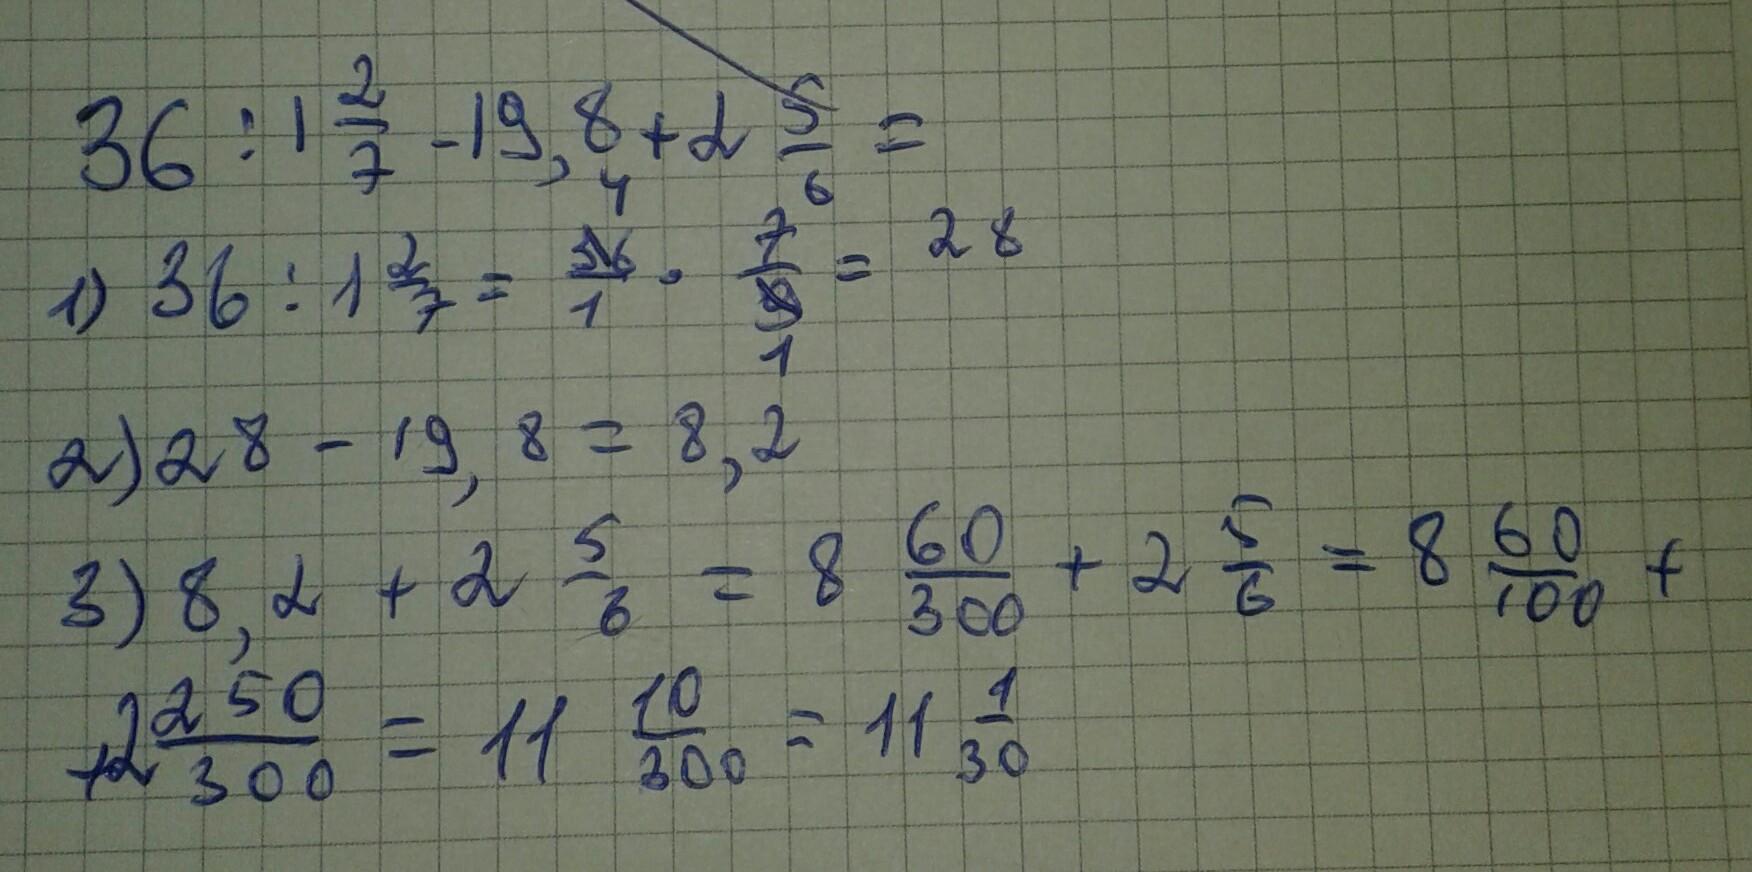 36 : 1 2/7 - 19,8 + 2 5/6 =
1) 36 : 1 2/7 = 36/1 · 7/9 = 28
4
1
2) 28 - 19,8 = 8,2
3) 8,2 + 2 5/6 = 8 60/300 + 2 5/6 = 8 60/100 +
+2 250/300 = 11 10/300 = 11 1/30